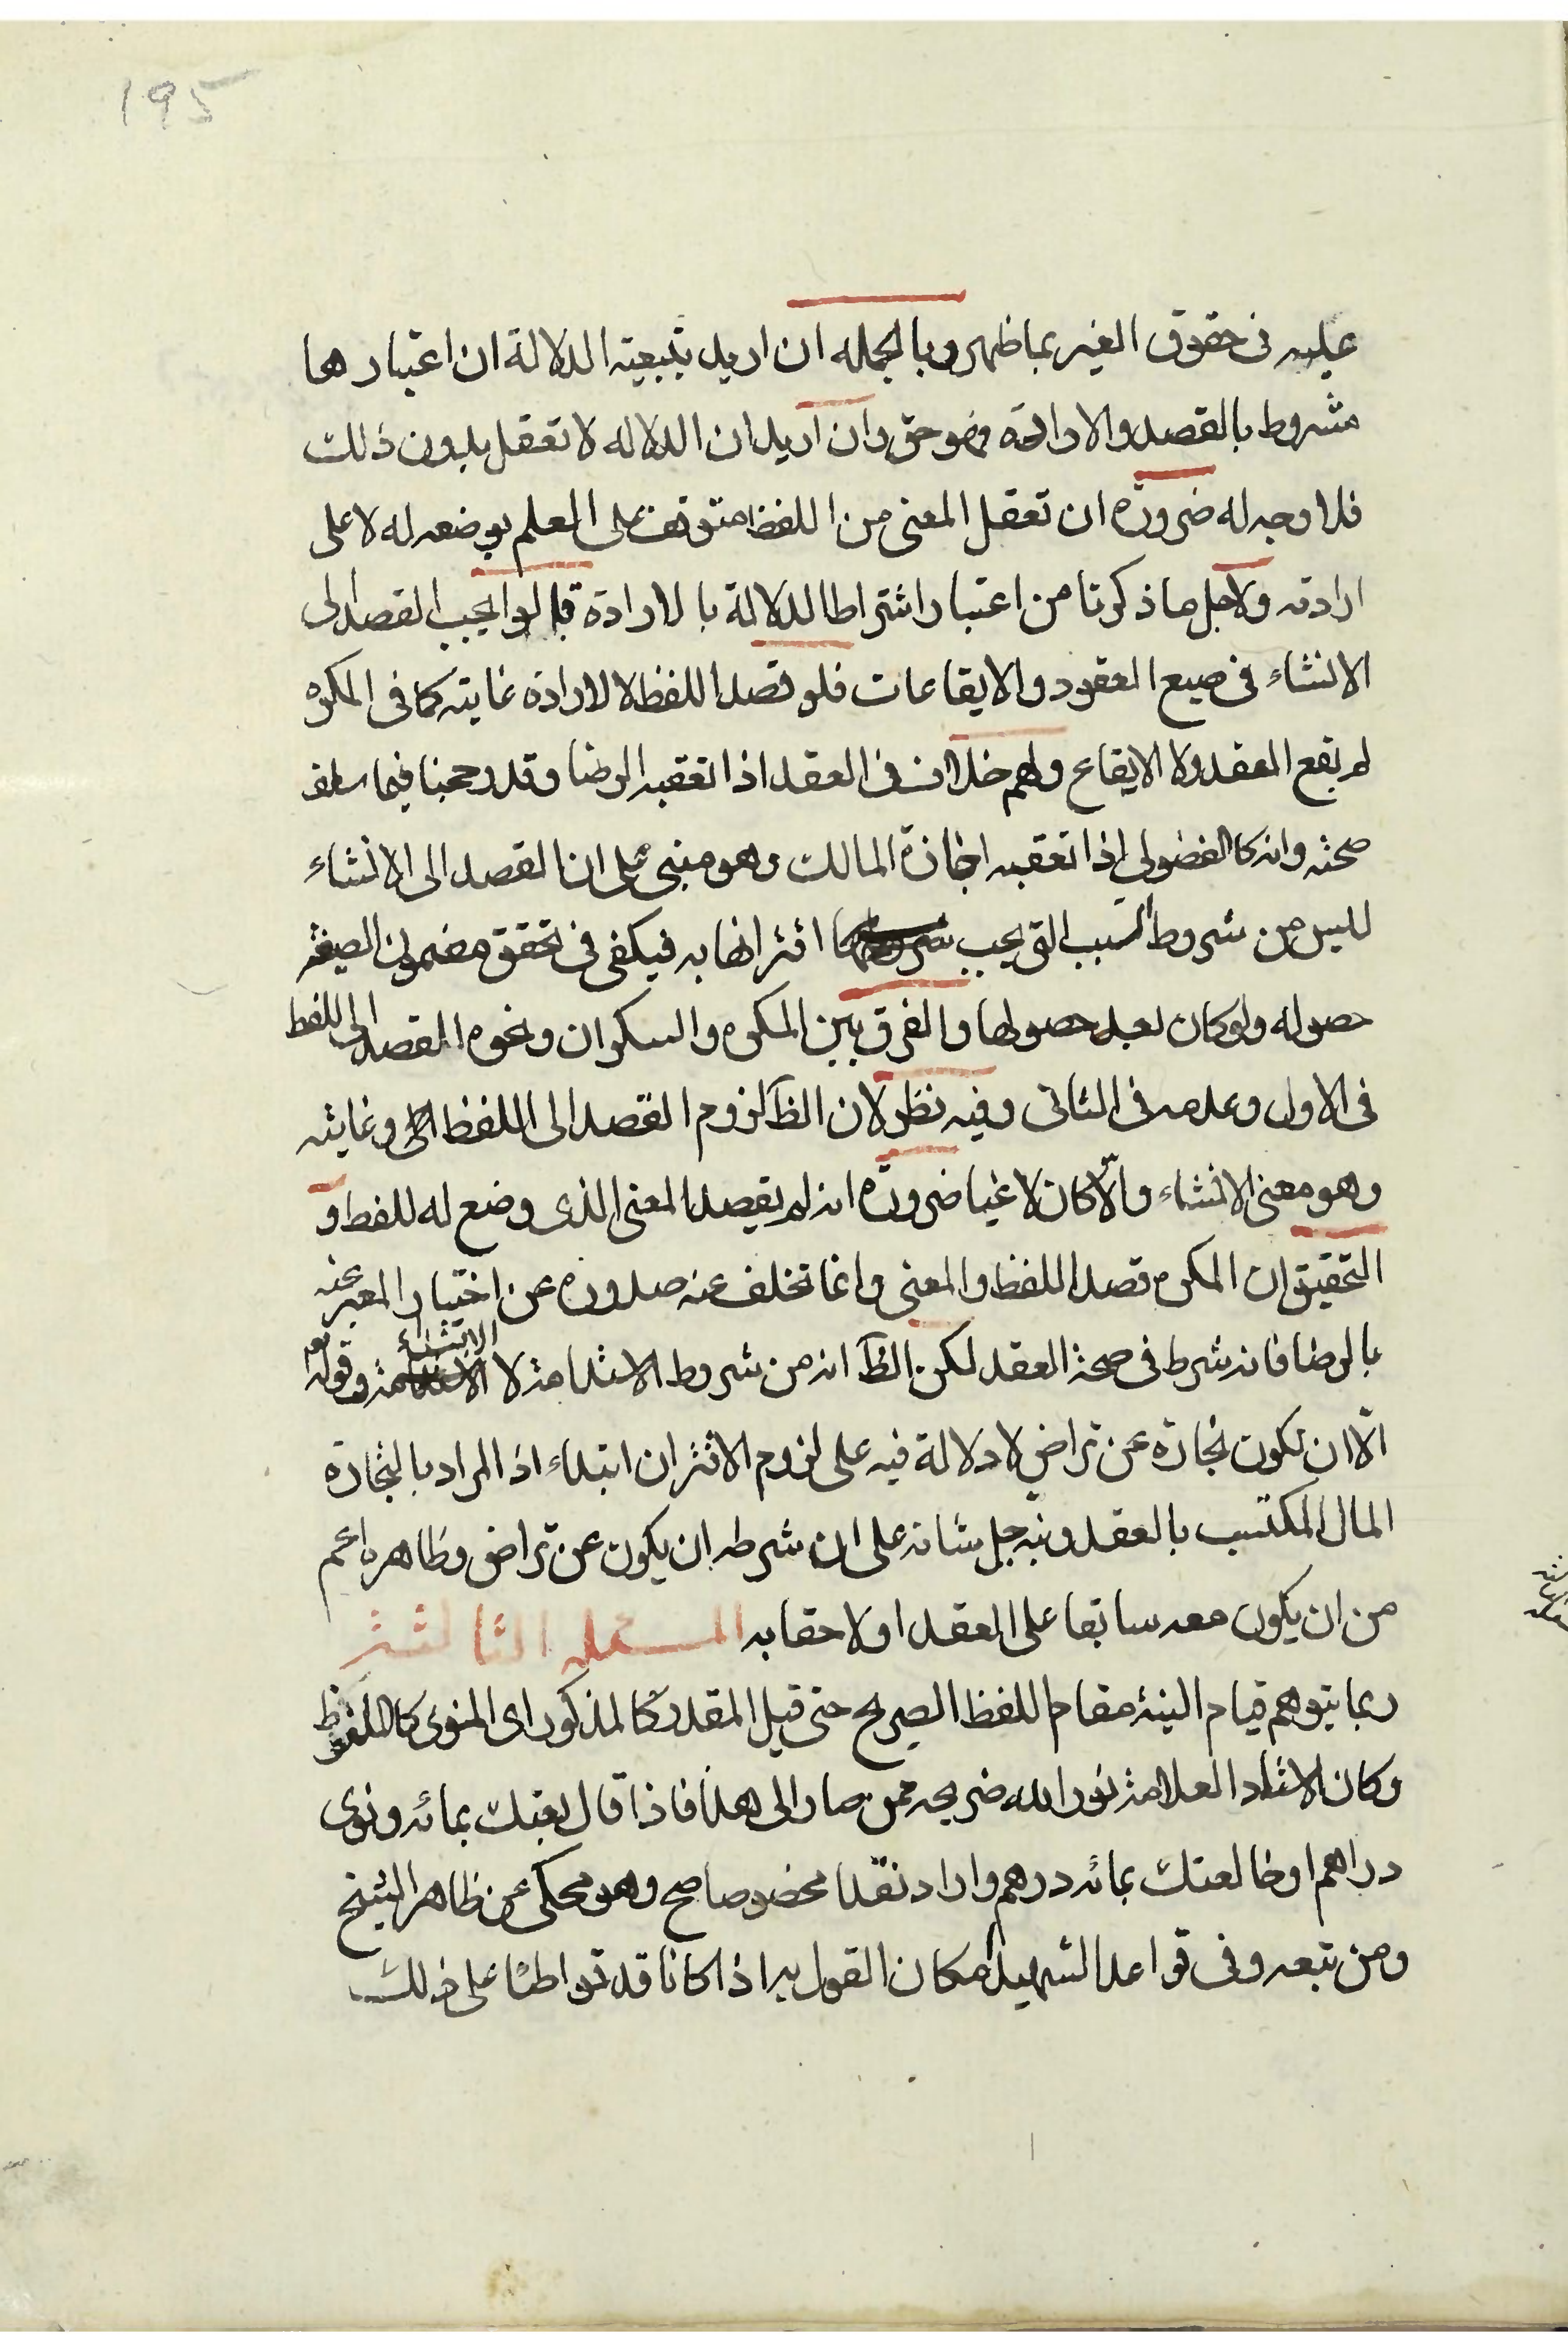 195
عليه في حقوق الغير بما ظهر وبالجمله ان اريد بتبعية الدلالة ان اعتبارها
مشروط بالقصد والارادة فهو حق وان اريد ان الدلاله لا تعقل بدون ذلك
فلا وجه له ضرورة ان تعقل المعنى من اللفظ متوقف على العلم بوضعه له لا على
ارادته ولاجل ما ذكرنا من اعتبار اشتراط الدلالة بالارادة قالوا يجب القصد الى
الانشاء في صيع العقود والايقاعات فلو قصد اللفظ لا لارادة غايته كما في المكره
لم يقع العقد ولا الايقاع ولهم خلاف في العقد اذا تعقبه الرضا وقد رجحنا فيما سلف
صحته وانه كالفضولي اذا تعقبه اجازة المالك وهو مبني على ان القصد الى الانشاء
لليس من شروط السبب التي يجب اقترانها به فيكفى في تحقق مضمون الصيغة
حصوله ولو كان بعد حصولها والفرق بين المكره والسكران ونحوه القصد الى اللفظ
في الاول وعدمه في الثاني وفيه نظر لان الظ لزوم القصد الى اللفظ وغايته
وهو معنى الانشاء والّا كان لاغيا ضرورة انه لم يقصد المعنى الذى وضع له للفظ و
التحقيق ان المكره قصد اللفظ والمعنى وانما تخلف عنه صدوره عن اختيار المعبر عنه
بالرضا فانه شرط في صحة العقد لكن الظ انه من شروط الاستدامة لا الابتداء وقوله تع
الّا ان تكون تجارة عن تراض لا دلالة فيه على لزوم الاقتران ابتداء اذ المراد بالتجارة
المال المكتسب بالعقد ونبه جل شانه على ان شرطه ان يكون عن تراض وظاهره اعم
من ان يكون معه سابقا على العقد او لاحقا به المسئله الثالثة
ربما يتوهم قيام النية مقام اللفظ الصريح حتى قيل المقدر كالمذكور اى المنوى كالملفوظ
وكان الاستاد العلامة نور الله ضريحه ممن صار الى هذا فاذا قال بعتك بمائه ونوى
دراهم او خالعتك بمائه درهم واراد نقدا مخصوصا صح وهو محكى عن ظاهر الشيخ
ومن تبعه وفى قواعد الشهيد امكان القول به اذا كانا قد تواطئا على ذلك